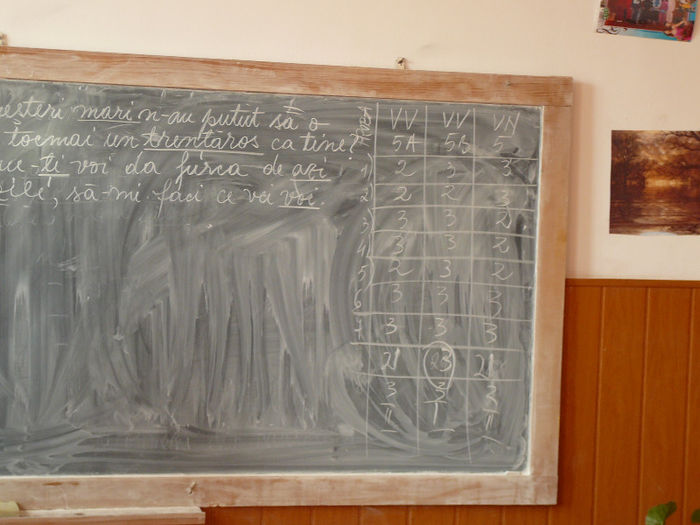 mari n-au putut să o
tocmai un trentaros ca tine?
ți voi da furca de aoi
să-mi faci ce vei voi.
VV VV VN
5A 5B 5
1) 2 3 3
2) 2 2 3
3) 3 3 2
4 3 3 2
5) 2 3 2
6 3 3 3
3 3 3
21 23 21
3 3 3